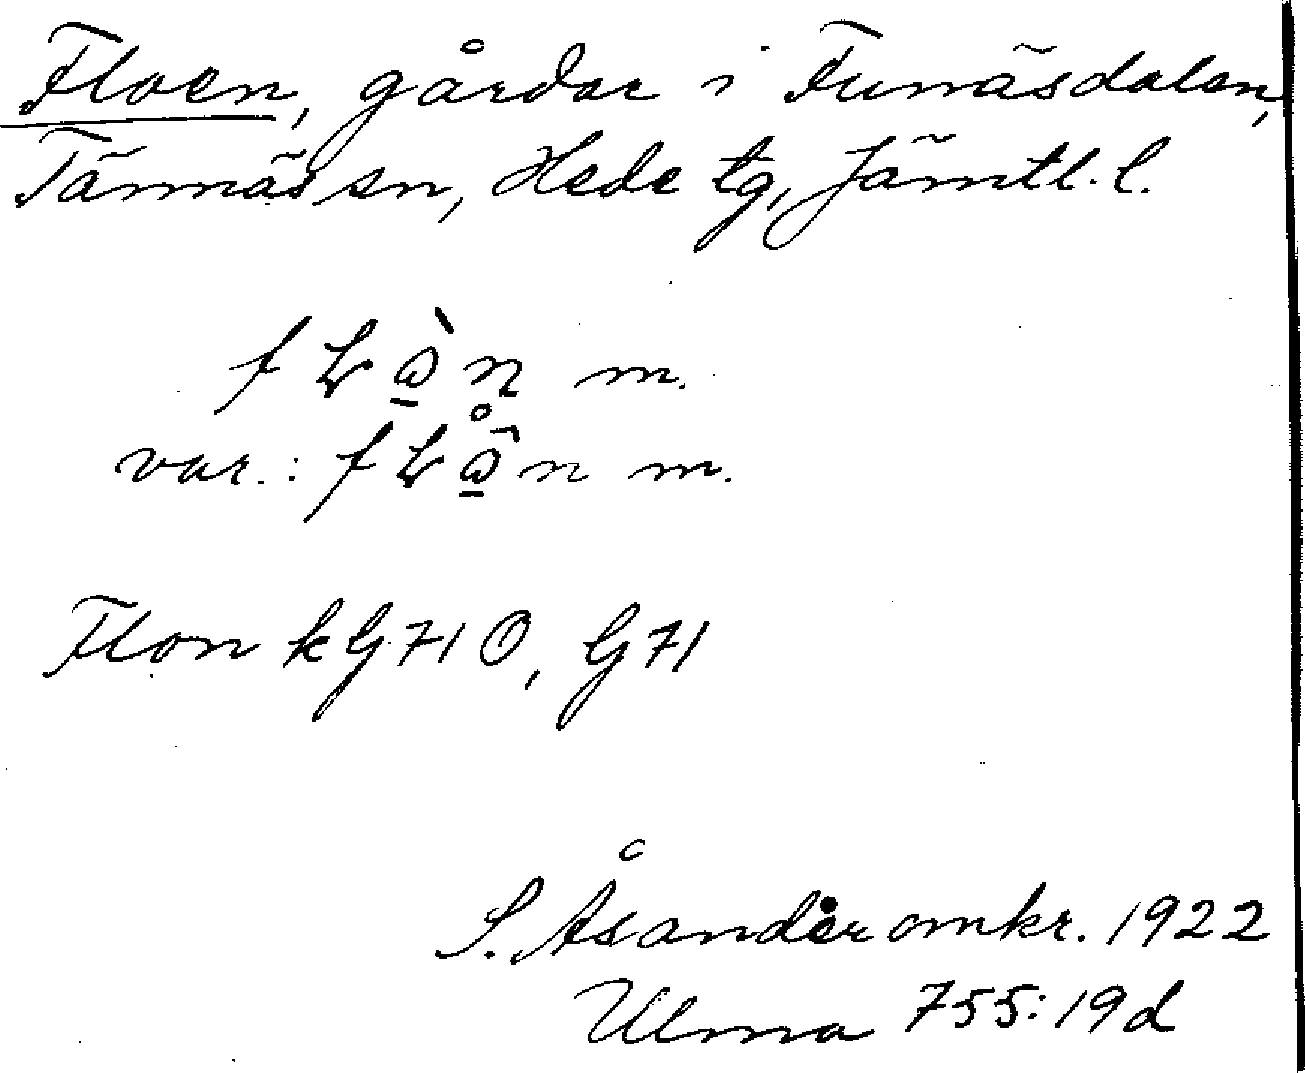 Floen, gårdar i Funäsdalen,
Tännäs sn, Hede tg, Jämtl. l.
m.
var.: m.
Flon k G 71 O, G 71
S. Åsander omkr. 1922
Ulma 755:19d